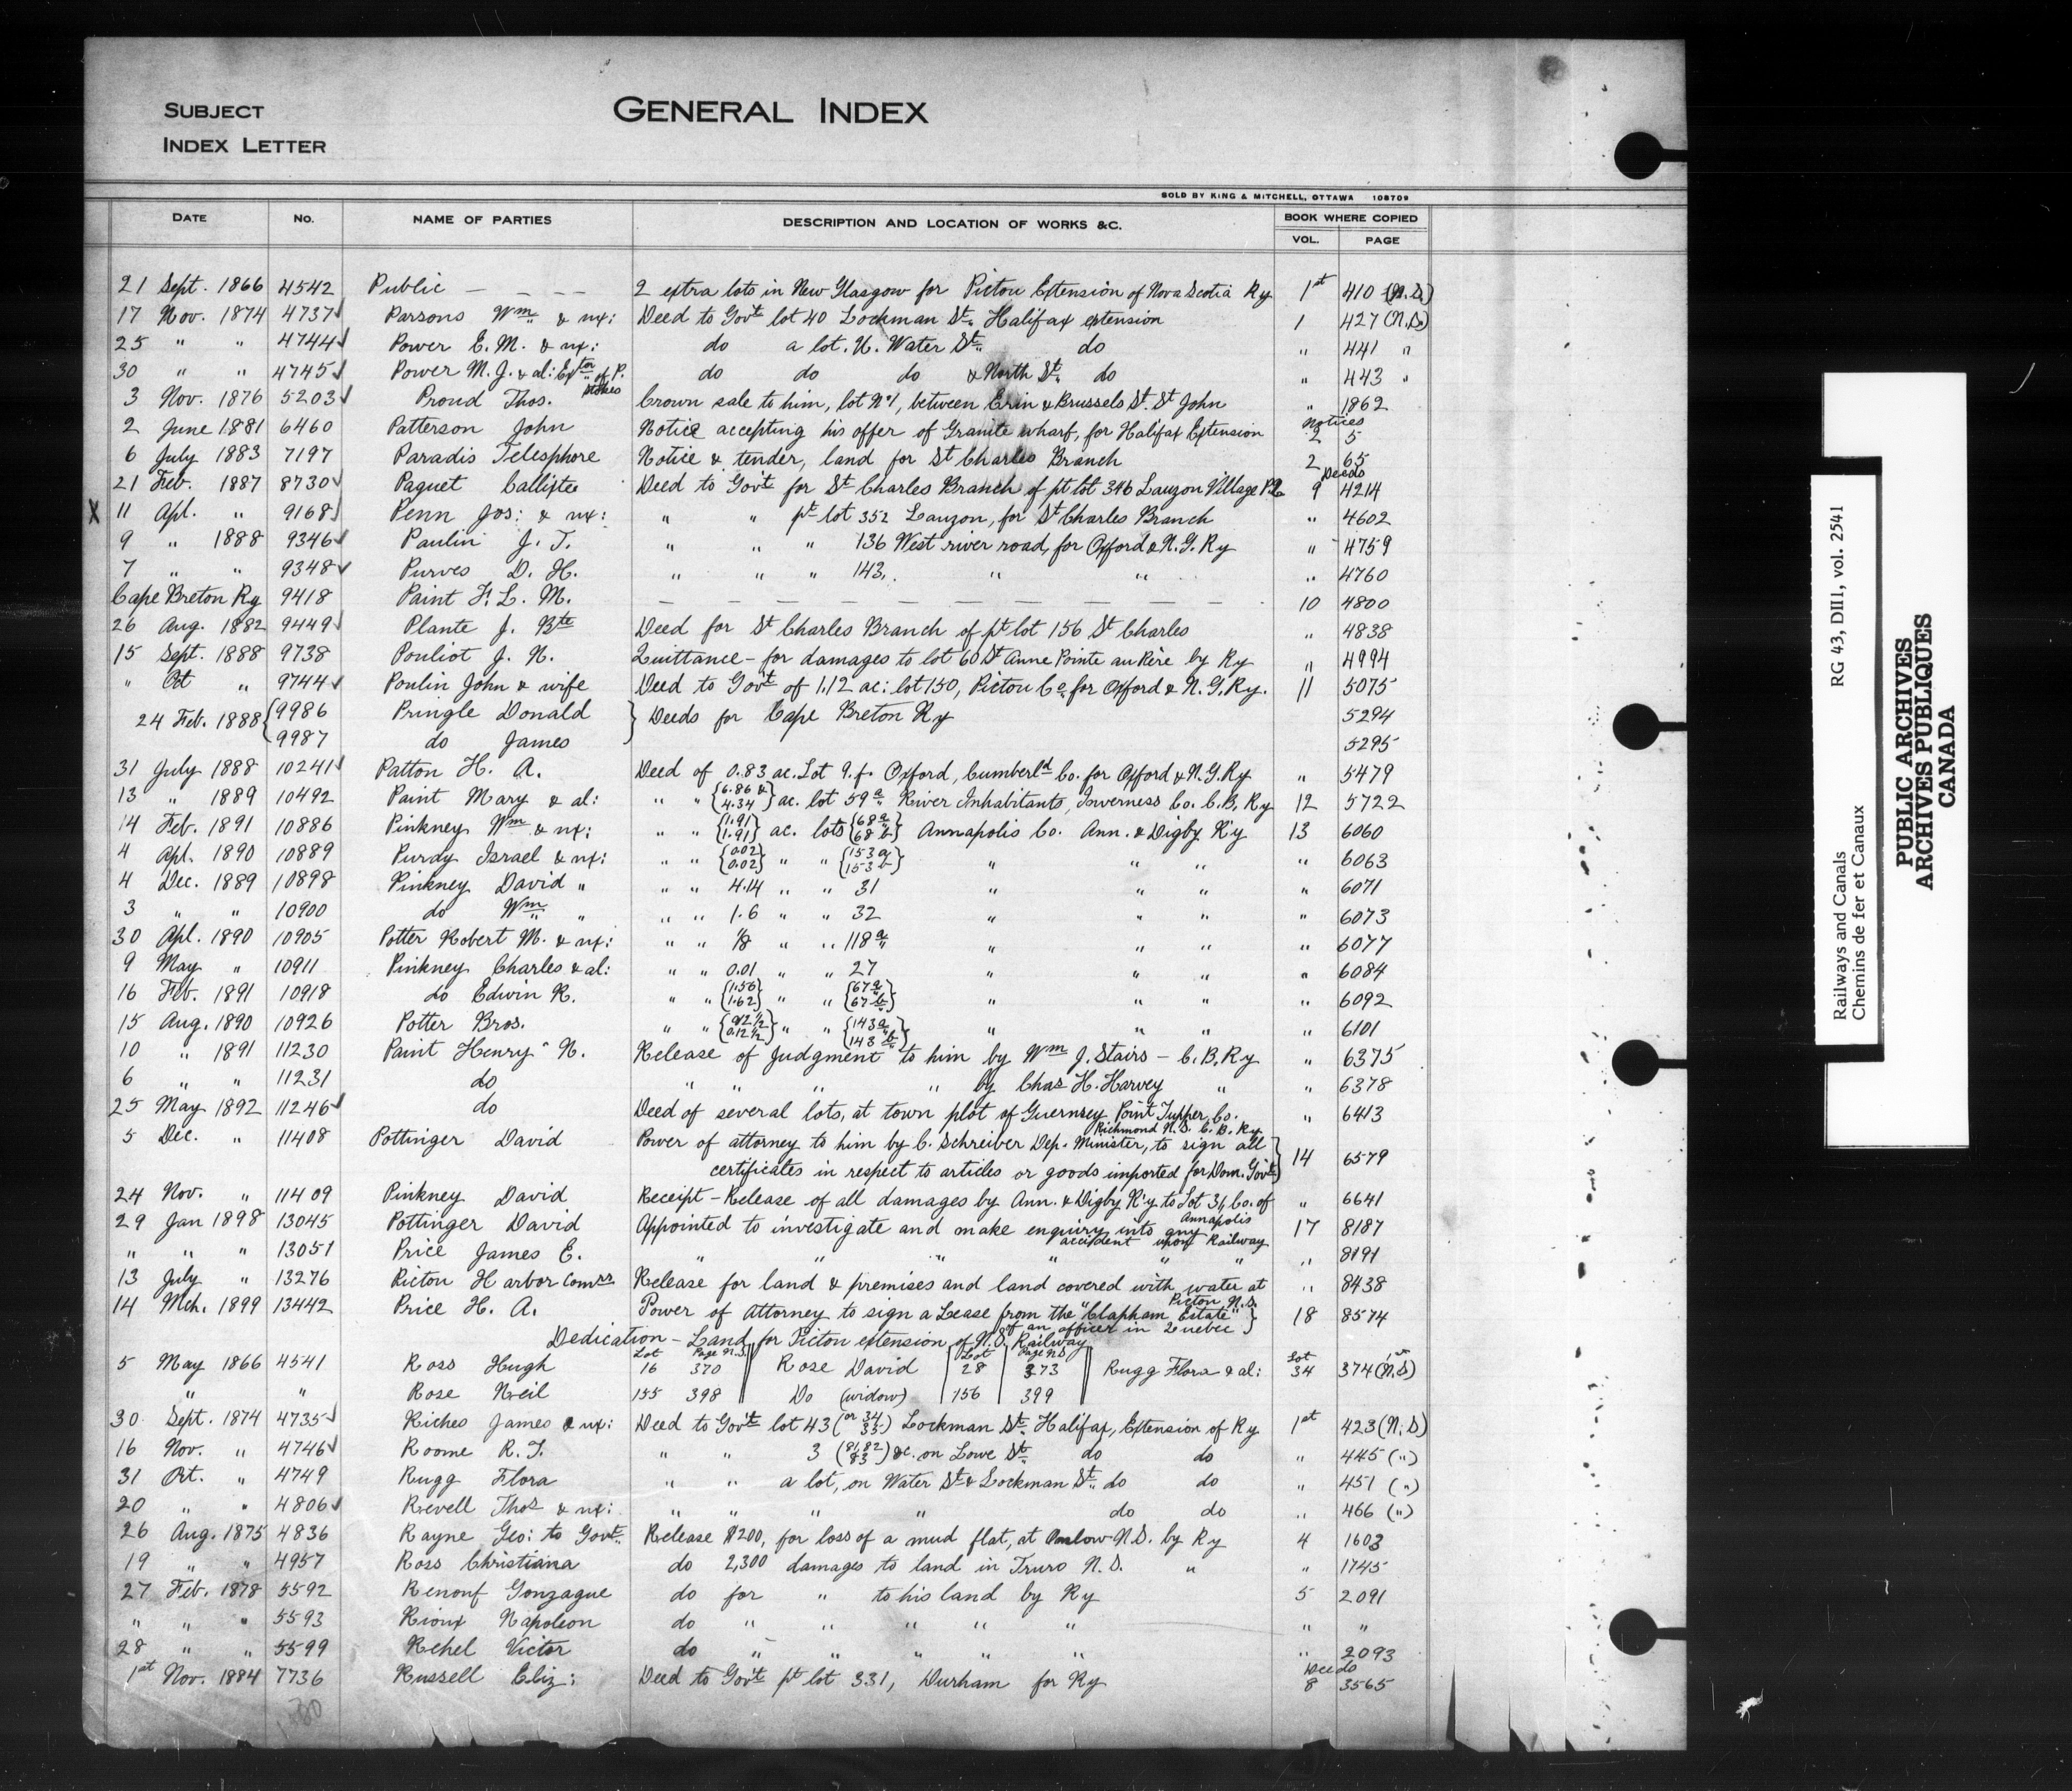 SUBJECT
INDEX LETTER
GENERAL INDEX
SOLD BY KING & MITCHELL, OTTAWA 108709
DATE No. NAME OF PARTIES DESCRIPTION AND LOCATION OF WORKS &C. BOOK WHERE COPIED
VOL. PAGE
21 Sept. 1866 4542 Public — — — 2 extra lots in New Glasgow for Pictou Extension of Nova Scotia Ry 1st 410 (N.S.)
17 Nov. 1874 4737✓ Parsons Wm & ux: Deed to Govt lot 40 Lockman St. Halifax extension 1 427 (N.S.)
25 " " 4744✓ Power E. M. & ux: do a lot. U. Water St. do " 441 "
30 " " 4745✓ Power M. J. & al: Extor of P. Stokes do do do & North St. do " 443 "
3 Nov. 1876 5203✓ Proud Thos. Crown sale to him, lot No 1, between Erin & Brussels St. St John " 1862
2 June 1881 6460 Patterson John Notice accepting his offer of Granite wharf, for Halifax Extension Notices 2 5
6 July 1883 7197 Paradis Telesphore Notice & tender, land for St Charles Branch 2 65
21 Feb. 1887 8730✓ Paquet Callixte Deed to Gov't for St Charles Branch of pt lot 346 Lauzon Village P.Q. Deeds 9 4214
X 11 Apl. " 9168✓ Penn Jos: & ux: " " pt lot 352 Lauzon, for St Charles Branch " 4602
9 " 1888 9346✓ Paulin J. T. " " " 136 West river road, for Oxford & N. G. Ry " 4759
7 " " 9348✓ Purves D. H. " " " 143, " " " 4760
Cape Breton Ry 9418 Paint F. L. M. — — — — — — — — — — 10 4800
26 Aug. 1882 9449✓ Plante J. Bte Deed for St Charles Branch of pt lot 156 St Charles " 4838
15 Sept. 1888 9738 Pouliot J. N. Quittance – for damages to lot 60 St Anne Pointe au Père by Ry " 4994
" Oct " 9744✓ Poulin John & wife Deed to Gov't of 1.12 ac: lot 150, Pictou Co. for Oxford & N. G. Ry. 11 5075
24 Feb. 1888 { 9986 Pringle Donald } Deeds for Cape Breton Ry 5294
9987 do James 5295
31 July 1888 10241✓ Patton H. A. Deed of 0.83 ac. Lot 9. f. Oxford, Cumberld Co. for Oxford & N. G. Ry " 5479
13 " 1889 10492 Paint Mary & al: " " {6.86 & 4.34} ac. lot 59a River Inhabitants, Inverness Co. C. B. Ry 12 5722
14 Feb. 1891 10886 Pinkney Wm & ux: " " {1.91 1.91} ac. lots {68a 68b} Annapolis Co. Ann. & Digby R'y 13 6060
4 Apl. 1890 10889 Purdy Israel & ux: " " {0.02 0.02} " " {153a 153b} " " " " 6063
4 Dec. 1889 10898 Pinkney David " " " 4.14 " " 31 " " " " 6071
3 " " 10900 do Wm " " " 1.6 " " 32 " " " " 6073
30 Apl. 1890 10905 Potter Robert M. & ux: " " 1/8 " " 118a " " " " 6077
9 May " 10911 Pinkney Charles & al: " " 0.01 " " 27 " " " " 6084
16 Feb. 1891 10918 do Edwin R. " " {1.56 1.62} " " {67a 67b} " " " " 6092
15 Aug. 1890 10926 Potter Bros. " " {0.12½ 0.12½} " " {143a 143b} " " " " 6101
10 " 1891 11230 Paint Henry N. Release of Judgment to him by Wm J. Stairs – C. B. Ry " 6375
6 " " 11231 do " " " " by Chas H. Harvey " " 6378
25 May 1892 11246✓ do Deed of several lots, at town plot of Guernsey Point Tupper, Co. Richmond N. S. C. B. Ry " 6413
5 Dec. " 11408 Pottinger David Power of attorney to him by C. Schreiber Dep. Minister, to sign all
certificates in respect to articles or goods imported for Dom. Gov't } 14 6579
24 Nov. " 11409 Pinkney David Receipt – Release of all damages by Ann. & Digby R'y to Lot 31, Co. of Annapolis " 6641
29 Jan 1898 13045 Pottinger David Appointed to investigate and make enquiry into any accident upon Railway 17 8187
" " " 13051 Price James E. " " " " " " " 8191
13 July " 13276 Pictou Harbor Comrs Release for land & premises and land covered with water at Pictou N.S. " 8438
14 Mch. 1899 13442 Price H. A. Power of Attorney to sign a Lease from the "Clapham Estate" of an officer in Quebec } 18 8574
Dedication – Land for Pictou extension of N. S. Railway
Lot Page N.S. Lot Page N.S. Lot
5 May 1866 4541 Ross Hugh 16 370 Rose David 28 373 Rugg Flora & al: 34 374 (N.S)
" " Rose Neil 155 398 Do (widow) 156 399
30 Sept. 1874 4735✓ Riches James & ux: Deed to Gov't lot 43 (or 34 35) Lockman St. Halifax, Extension of Ry 1st 423 (N. S)
16 Nov. " 4746✓ Roome R. T. " " 3 (81,82 83) &c. on Lowe St. do do " 445 (")
31 Oct. " 4749 Rugg Flora " " a lot, on Water St & Lockman St. do do " 451 (")
20 " " 4806✓ Revell Thos & ux: " " " " do do " 466 (")
26 Aug. 1875 4836 Rayne Geo: to Govt. Release $200, for loss of a mud flat, at Onslow N.S. by Ry 4 1603
19 " " 4957 Ross Christiana do 2,300 damages to land in Truro N. S. " " 1745
27 Feb. 1878 5592 Renouf Gonzague do for " to his land by Ry 5 2091
" " " 5593 Rioux Napoleon do " " " " " " "
28 " " 5599 Rehel Victor do " " " " " " 2093
1st Nov. 1884 7736 Russell Eliz: Deed to Gov't pt lot 331, Durham for Ry Deeds 8 3565
RG 43, DII1, vol. 2541
Railways and Canals
Chemins de fer et Canaux
PUBLIC ARCHIVES
ARCHIVES PUBLIQUES
CANADA